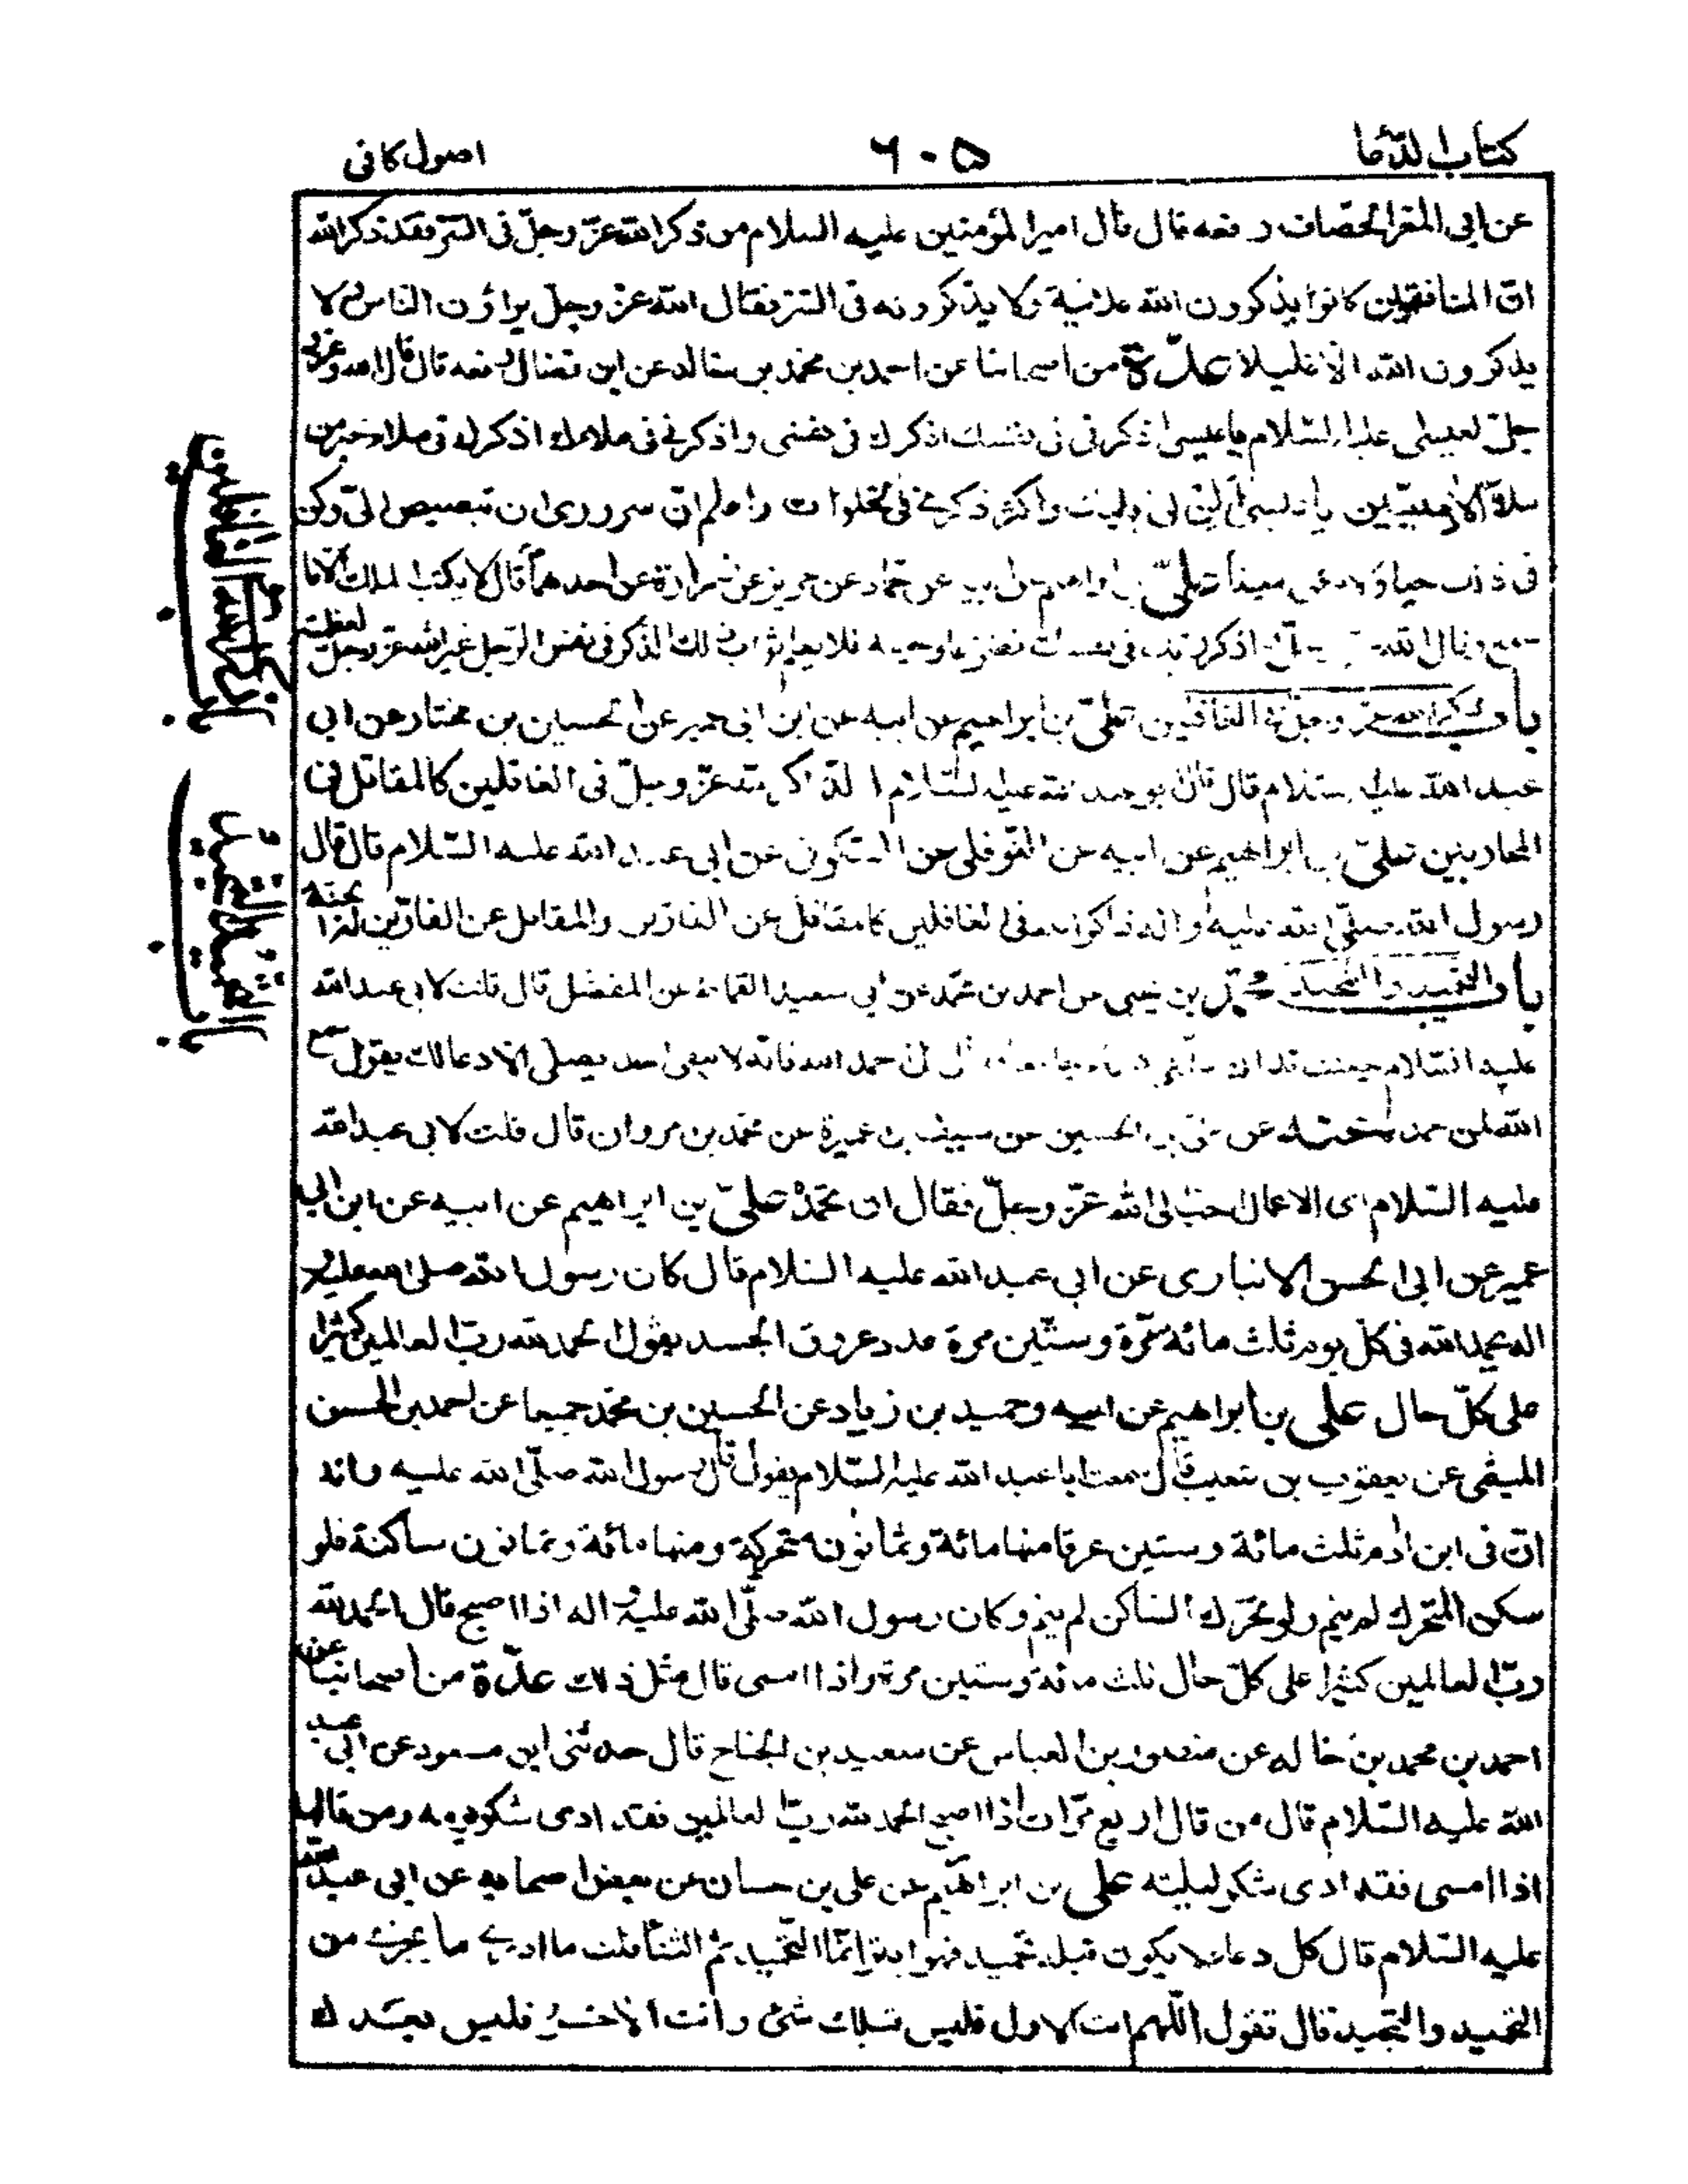 كتاب الدعا
٦٠٥
اصول كافى
عن ابى المغرا الخصاف رفعه قال قال امير المؤمنين عليه السلام من ذكر الله عزّ وجلّ فى السّر فقد ذكر الله
انّ المنافقين كانوا يذكرون الله علانية ولا يذكرونه فى السّر فقال الله عزّ وجلّ يراؤن النّاس ولا
يذكرون الله الّا قليلا عدّة من اصحابنا عن احمد بن محمّد بن خالد عن ابن فضال رفعه قال قال الله عزّ و
جلّ لعيسى عليه السّلام يا عيسى اذكرنى فى نفسك اذكرك فى نفسى واذكرنى فى ملاءك اذكرك فى ملاء خير من
ملاء الآدميّين يا عيسى الن لى قلبك واكثر ذكرى فى الخلوات واعلم انّ سرورى ان تبصبص الىّ وكن
فى ذلك حيا ولا تكن ميتا علىّ بن ابراهيم عن ابيه عن حمّاد عن حريز عن زرارة عن احدهما قال لا يكتب الملك الّا ما
سمع وقال الله اذكر ربّك فى نفسك تضرّعا وخيفة فلا يعلم ثواب ذلك الذّكر فى نفس الرّجل غير الله عزّ وجلّ
لعظمته
باب ذكر الله عزّ وجلّ فى الغافلين علىّ بن ابراهيم عن ابيه عن ابن ابى عمير عن الحسين بن مختار عن ابى
عبد الله عليه السّلام قال قال ابو عبد الله عليه السّلام الذّاكر لله عزّ وجلّ فى الغافلين كالمقاتل فى
المحاربين علىّ بن ابراهيم عن ابيه عن النّوفلى عن السّكونى عن ابى عبد الله عليه السّلام قال قال
رسول الله صلّى الله عليه واله ذاكر الله فى الغافلين كالمقاتل عن الفارّين والمقاتل عن الفارّين له الجنّة
باب التّحميد والتّمجيد محمّد بن يحيى عن احمد بن محمّد عن ابى سعيد القماط عن المفضّل قال قلت لابى عبد الله
عليه السّلام جعلت فداك لى احمد الله فانّه لا يبقى احد يصلّى الّا دعا لك يقول سمع
الله لمن حمده عنه عن علىّ بن الحسين عن سيف بن عميرة عن محمّد بن مروان قال قلت لابى عبد الله
عليه السّلام اى الاعمال احبّ الى الله عزّ وجلّ فقال ان تحمّده علىّ بن ابراهيم عن ابيه عن ابن ابى
عمير عن ابى الحسن الانبارى عن ابى عبد الله عليه السّلام قال كان رسول الله صلّى الله عليه و
اله يحمد الله فى كلّ يوم ثلث مائة مرّة وستّين مرة عدد عروق الجسد يقول الحمد لله ربّ العالمين كثيرا
على كلّ حال على بن ابراهيم عن ابيه وحميد بن زياد عن الحسين بن محمّد جميعا عن احمد بن الحسن
الميثمى عن يعقوب بن شعيب قال سمعت ابا عبد الله عليه السّلام يقول قال رسول الله صلّى الله عليه واله
انّ فى ابن ادم ثلث مائة وستين عرقا منها مائة وثمانون متحركة ومنها مائة وثمانون ساكنة فلو
سكن المتحرك لم ينم ولو تحرّك السّاكن لم ينم وكان رسول الله صلّى الله عليه و اله اذا اصبح قال الحمد لله
ربّ العالمين كثيرا على كلّ حال ثلث مائة وستين مرة واذا امسى قال مثل ذلك عدّة من اصحابنا عن
احمد بن محمد بن خالد عن منصور بن العباس عن سعيد بن الجناح قال حدثنى ابن مسعود عن ابى عبد
الله عليه السّلام قال من قال اربع مرّات اذا اصبح الحمد لله ربّ العالمين فقد ادى شكر يومه ومن قالها
اذا امسى فقد ادى شكر ليلته على بن ابراهيم عن على بن حسان عن بعض اصحابه عن ابى عبد الله
عليه السّلام قال كل دعاء لا يكون قبله تحميد فهو ابتر انّما التّحميد ثمّ الثّناء قلت ما ادرى ما يجزى من
التّحميد والتّمجيد قال تقول اللّهم انت الاول فليس قبلك شئ وانت الآخر فليس بعدك
باب ذكر الله عزّ فى الغافلين
باب التحميد والتمجيد